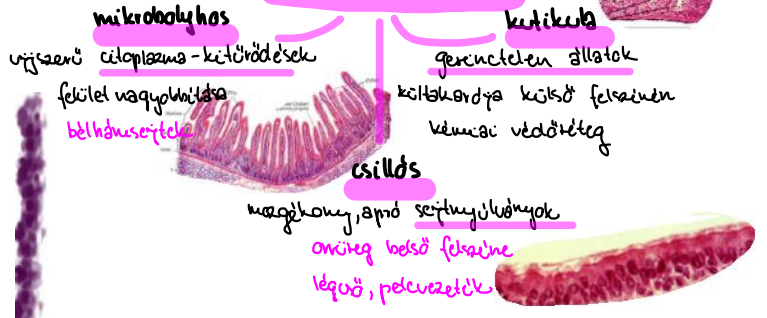 mikrobolyhos
ujjszerű citoplazma-kitűrődések
felület nagyobbítása
bélhámsejtek
kutikula
gerinctelen állatok
kültakarója külső felszínén
kémiai védőréteg
csillós
mozgékony, apró sejtnyúlványok
orrüreg belső felszíne
légcső, petevezeték